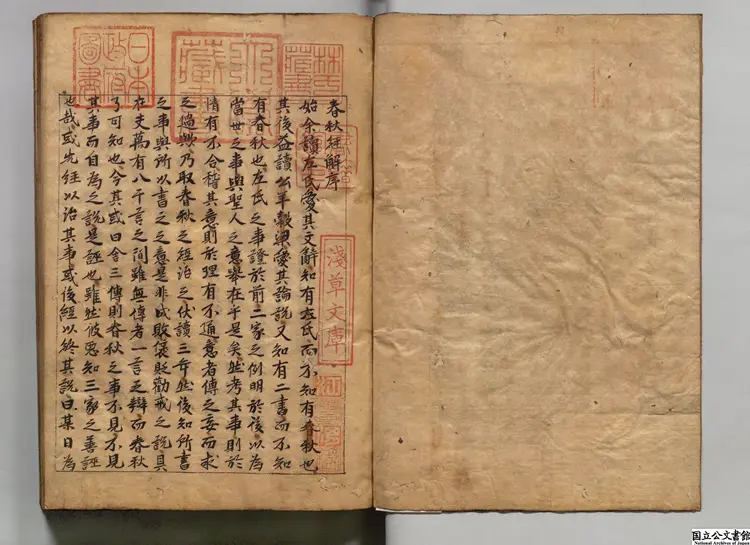 春秋經解序
始余讀左氏愛其文辭知有左氏而不知有春秋也
其後益讀公羊穀梁愛其論說又知有二書而不知
有春秋也左氏之事證於前二家之例明於後以為
當世之事與聖人之意舉在乎是矣然考其事則於
情有不合稽其意則於理有不通意者傳之妄而求
之過歟乃取春秋之經治之伏讀三年然後知所書
之事與所以書之之意是非成敗褒貶勸戒之說具
在夫萬有八千言之間雖無傳者一言之辯而春秋
了可知也今其或曰舍三傳則春秋之事不見不見
其事而自為之說是誣也雖然彼惡知三家之善誣
也哉或先經以治其事或後經以終其說曰某日為
日本
政府
圖書
淺草文庫
国立公文書館
National Archives of Japan